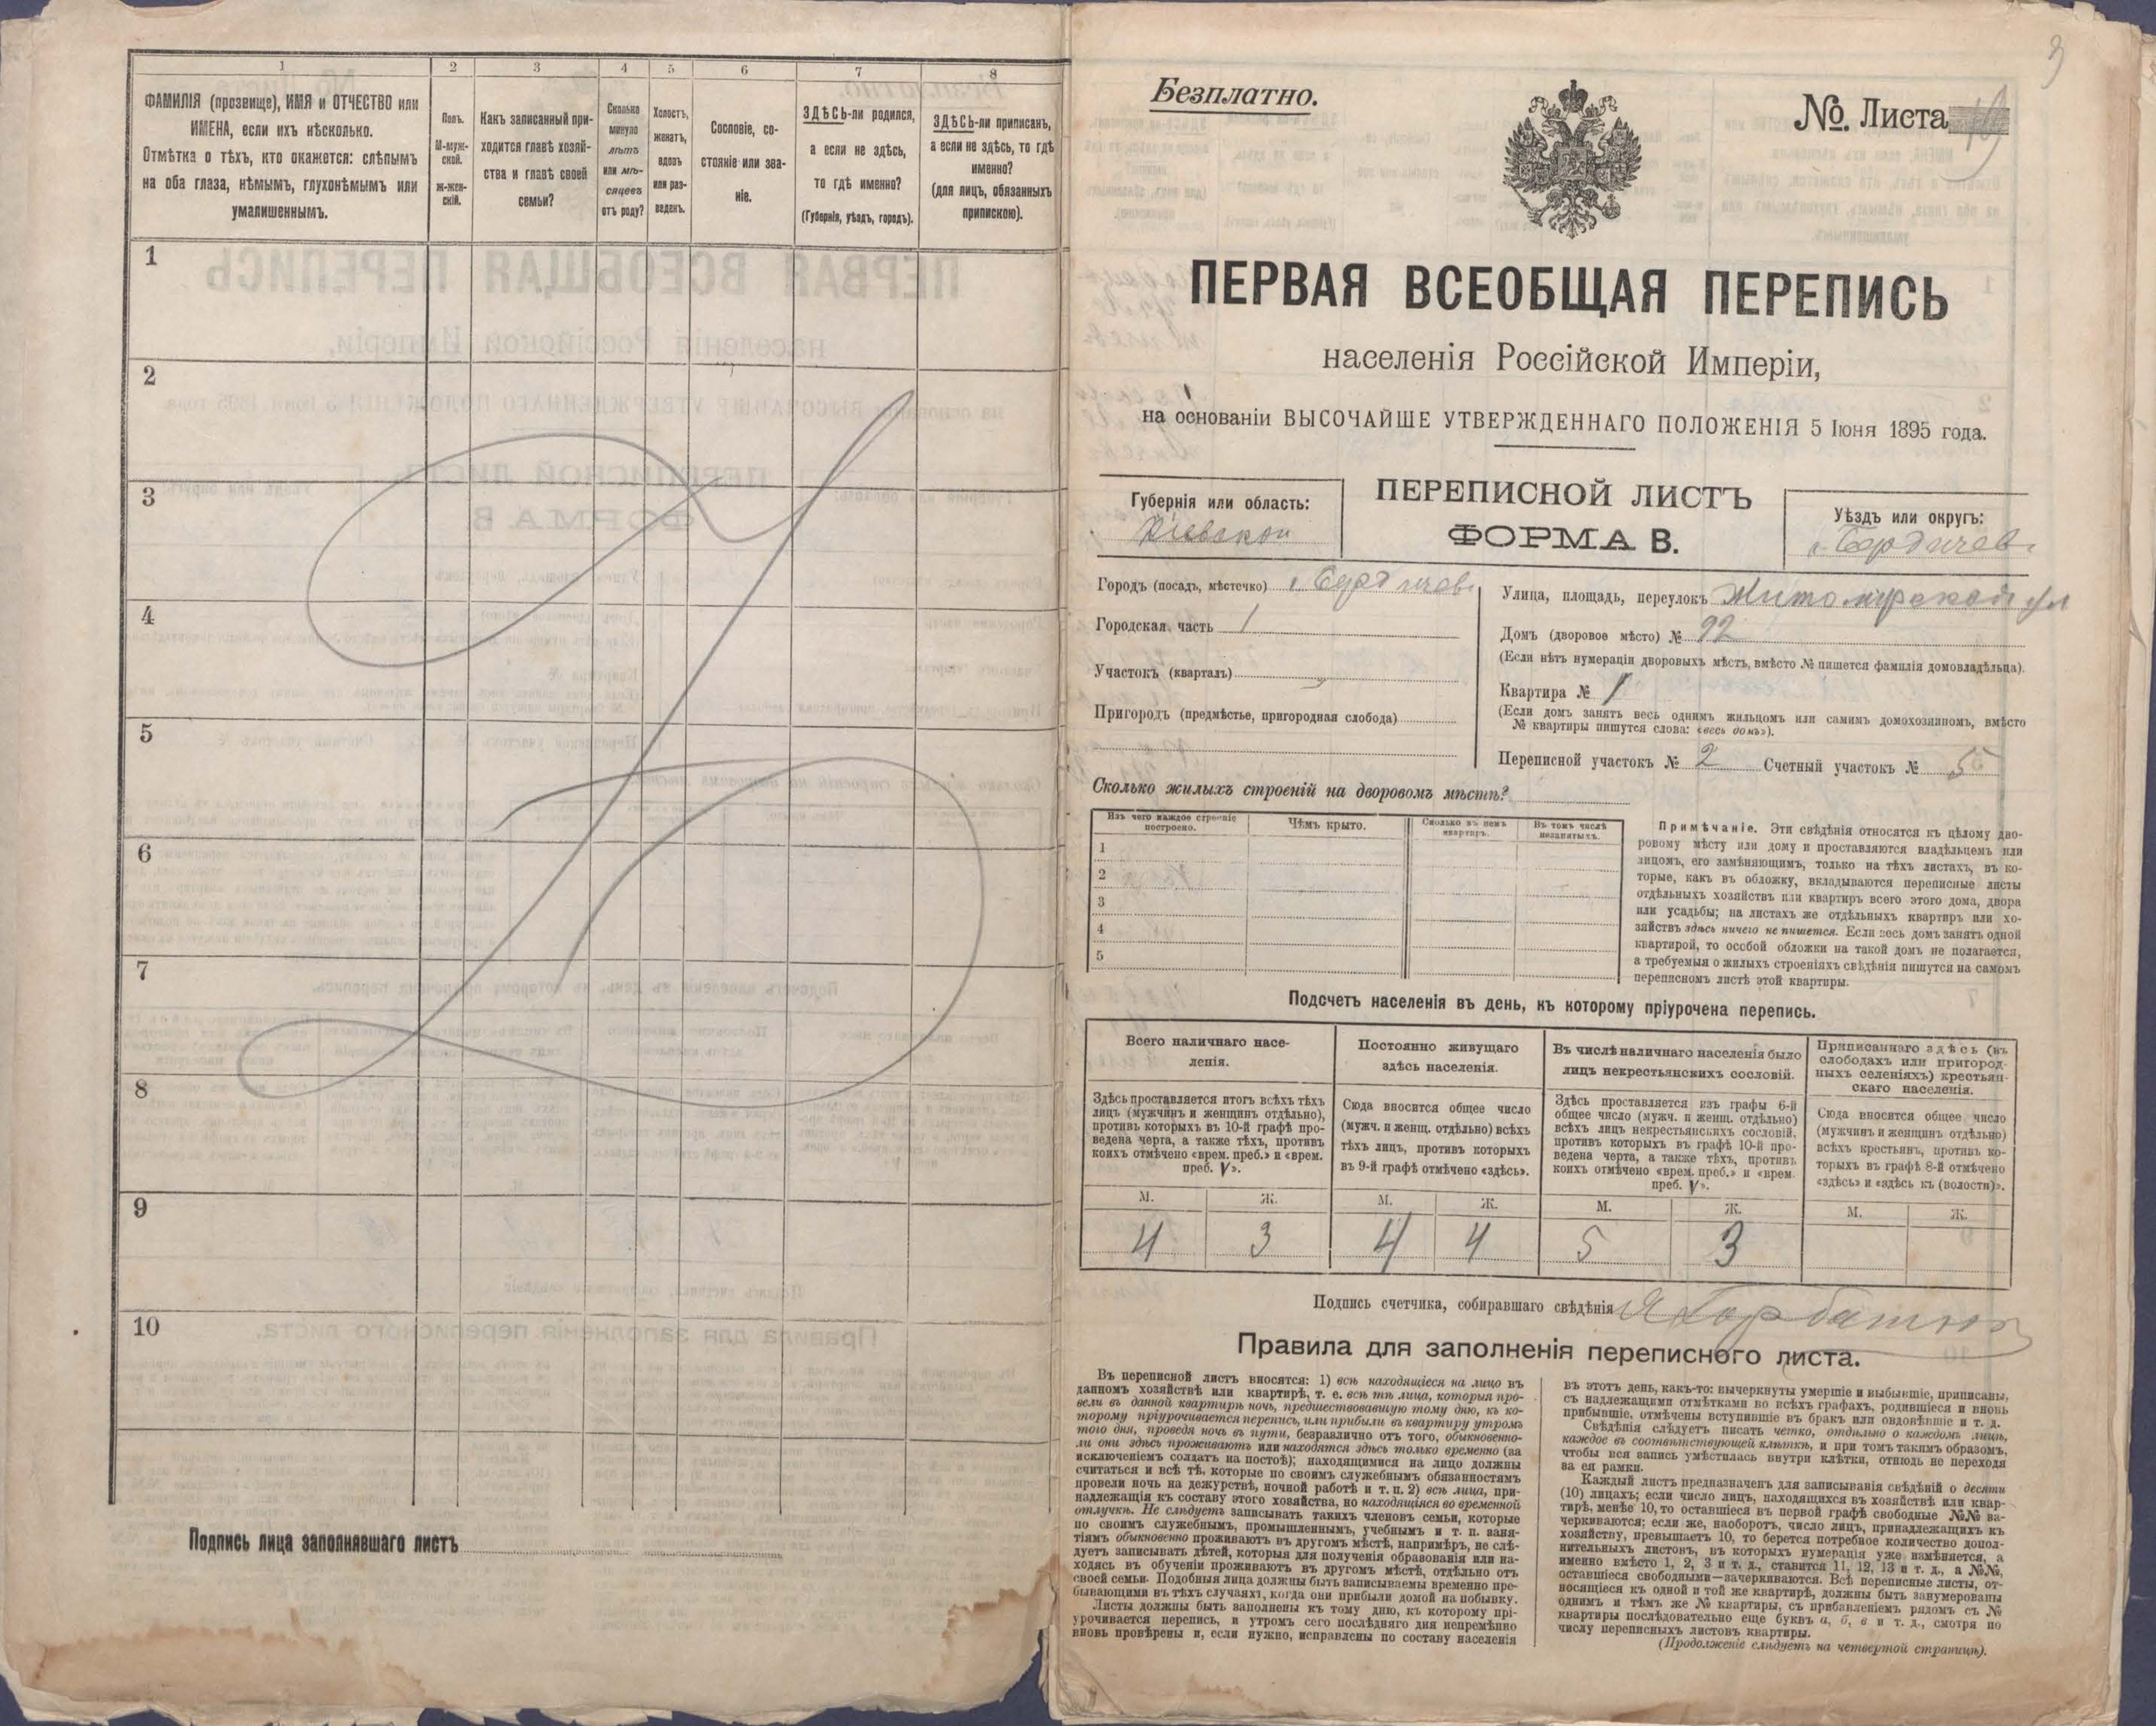 1
2
3
4
5
6
7
8
ФАМИЛІЯ (прозвище), ИМЯ и ОТЧЕСТВО или
ИМЕНА, если ихъ нѣсколько.
Отмѣтка о тѣхъ, кто окажется: слѣпымъ
на оба глаза, нѣмымъ, глухонѣмымъ или
умалишеннымъ.
Полъ.
М-муж-
ской.
Ж-жен-
скій.
Какъ записанный при-
ходится главѣ хозяй-
ства и главѣ своей
семьи?
Сколько
минуло
лѣтъ
или мѣ-
сяцевъ
отъ роду?
Холостъ,
женатъ,
вдовъ
или раз-
веденъ.
Сословіе, со-
стояніе или зва-
ніе.
ЗДѢСЬ-ли родился,
а если не здѣсь,
то гдѣ именно?
(Губернія, уѣздъ, городъ).
ЗДѢСЬ-ли приписанъ,
а если не здѣсь, то гдѣ
именно?
(для лицъ, обязанныхъ
припискою).
1
2
3
4
5
6
7
8
9
10
Подпись лица заполнявшаго листъ
3
Безплатно.
№. Листа
ПЕРВАЯ ВСЕОБЩАЯ ПЕРЕПИСЬ
населенія Россійской Имперіи,
на основаніи ВЫСОЧАЙШЕ УТВЕРЖДЕННАГО ПОЛОЖЕНІЯ 5 Іюня 1895 года.
Губернія или область:
Кіевской
ПЕРЕПИСНОЙ ЛИСТЪ
ФОРМА В.
Уѣздъ или округъ:
г. Бердичев
Городъ (посадъ, мѣстечко) г. Бердичев
Городская часть 1
Участокъ (кварталъ)
Пригородъ (предмѣстье, пригородная слобода)
Улица, площадь, переулокъ Житомирской ул
Домъ (дворовое мѣсто) № 92
(Если нѣтъ нумераціи дворовыхъ мѣстъ, вмѣсто № пишется фамилія домовладѣльца).
Квартира № 1
(Если домъ занятъ весь однимъ жильцомъ или самимъ домохозяиномъ, вмѣсто
№ квартиры пишутся слова: «весь домъ»).
Переписной участокъ № 2 Счетный участокъ № 5
Сколько жилыхъ строеній на дворовомъ мѣстѣ?
Изъ чего каждое строеніе
построено.
Чѣмъ крыто.
Сколько въ немъ
квартиръ.
Въ томъ числѣ
незанятыхъ.
1
2
3
4
5
Примѣчаніе. Эти свѣдѣнія относятся къ цѣлому дво-
ровому мѣсту или дому и проставляются владѣльцемъ или
лицомъ, его замѣняющимъ, только на тѣхъ листахъ, въ ко-
торые, какъ въ обложку, вкладываются переписные листы
отдѣльныхъ хозяйствъ или квартиръ всего этого дома, двора
или усадьбы; на листахъ же отдѣльныхъ квартиръ или хо-
зяйствъ здѣсь ничего не пишется. Если весь домъ занятъ одной
квартирой, то особой обложки на такой домъ не полагается,
а требуемыя о жилыхъ строеніяхъ свѣдѣнія пишутся на самомъ
переписномъ листѣ этой квартиры.
Подсчетъ населенія въ день, къ которому пріурочена перепись.
Всего наличнаго насе-
ленія.
Здѣсь проставляется итогъ всѣхъ тѣхъ
лицъ (мужчинъ и женщинъ отдѣльно),
противъ которыхъ въ 10-й графѣ про-
ведена черта, а также тѣхъ, противъ
коихъ отмѣчено «врем. преб.» и «врем.
преб. V».
Постоянно живущаго
здѣсь населенія.
Сюда вносится общее число
(мужч. и женщ. отдѣльно) всѣхъ
тѣхъ лицъ, противъ которыхъ
въ 9-й графѣ отмѣчено «здѣсь».
Въ числѣ наличнаго населенія было
лицъ некрестьянскихъ сословій.
Здѣсь проставляется изъ графы 6-й
общее число (мужч. и женщ. отдѣльно)
всѣхъ лицъ некрестьянскихъ сословій,
противъ которыхъ въ графѣ 10-й про-
ведена черта, а также тѣхъ, противъ
коихъ отмѣчено «врем. преб.» и «врем.
преб. V».
Приписаннаго здѣсь (въ
слободахъ или пригород-
ныхъ селеніяхъ) крестьян-
скаго населенія.
Сюда вносится общее число
(мужчинъ и женщинъ отдѣльно)
всѣхъ крестьянъ, противъ ко-
торыхъ въ графѣ 8-й отмѣчено
«здѣсь» и «здѣсь къ (волости)».
М. Ж. М. Ж. М. Ж. М. Ж.
4 3 4 4 5 3
Подпись счетчика, собиравшаго свѣдѣнія Я Горбатюк
Правила для заполненія переписного листа.
Въ переписной листъ вносятся: 1) всѣ находящіеся на лицо въ
данномъ хозяйствѣ или квартирѣ, т. е. всѣ тѣ лица, которыя про-
вели въ данной квартирѣ ночь, предшествовавшую тому дню, къ ко-
торому пріурочивается перепись, или прибыли въ квартиру утромъ
того дня, проведя ночь въ пути, безразлично отъ того, обыкновенно-
ли они здѣсь проживаютъ или находятся здѣсь только временно (за
исключеніемъ солдатъ на постоѣ); находящимися на лицо должны
считаться и всѣ тѣ, которые по своимъ служебнымъ обязанностямъ
провели ночь на дежурствѣ, ночной работѣ и т. п. 2) всѣ лица, при-
надлежащія къ составу этого хозяйства, но находящіяся во временной
отлучкѣ. Не слѣдуетъ записывать такихъ членовъ семьи, которые
по своимъ служебнымъ, промышленнымъ, учебнымъ и т. п. заня-
тіямъ обыкновенно проживаютъ въ другомъ мѣстѣ, напримѣръ, не слѣ-
дуетъ записывать дѣтей, которыя для полученія образованія или на-
ходясь въ обученіи проживаютъ въ другомъ мѣстѣ, отдѣльно отъ
своей семьи. Подобныя лица должны быть записываемы временно пре-
бывающими въ тѣхъ случаяхъ, когда они прибыли домой на побывку.
Листы должны быть заполнены къ тому дню, къ которому прі-
урочивается перепись, и утромъ сего послѣдняго дня непремѣнно
вновь провѣрены и, если нужно, исправлены по составу населенія
въ этотъ день, какъ-то: вычеркнуты умершіе и выбывшіе, приписаны,
съ надлежащими отмѣтками во всѣхъ графахъ, родившіеся и вновь
прибывшіе, отмѣчены вступившіе въ бракъ или овдовѣвшіе и т. д.
Свѣдѣнія слѣдуетъ писать четко, отдѣльно о каждомъ лицѣ,
каждое въ соотвѣтствующей клѣткѣ, и при томъ такимъ образомъ,
чтобы вся запись умѣстилась внутри клѣтки, отнюдь не переходя
за ея рамки.
Каждый листъ предназначенъ для записыванія свѣдѣній о десяти
(10) лицахъ; если число лицъ, находящихся въ хозяйствѣ или квар-
тирѣ, менѣе 10, то оставшіеся въ первой графѣ свободные №№ за-
черкиваются; если же, наоборотъ, число лицъ, принадлежащихъ къ
хозяйству, превышаетъ 10, то берется потребное количество допол-
нительныхъ листовъ, въ которыхъ нумерація уже измѣняется, а
именно вмѣсто 1, 2, 3 и т. д., ставится 11, 12, 13 и т. д., а №№,
оставшіеся свободными—зачеркиваются. Всѣ переписные листы, от-
носящіеся къ одной и той же квартирѣ, должны быть занумерованы
однимъ и тѣмъ же № квартиры, съ прибавленіемъ рядомъ съ №
квартиры послѣдовательно еще буквъ а, б, в и т. д., смотря по
числу переписныхъ листовъ квартиры.
(Продолженіе слѣдуетъ на четвертой страницѣ).